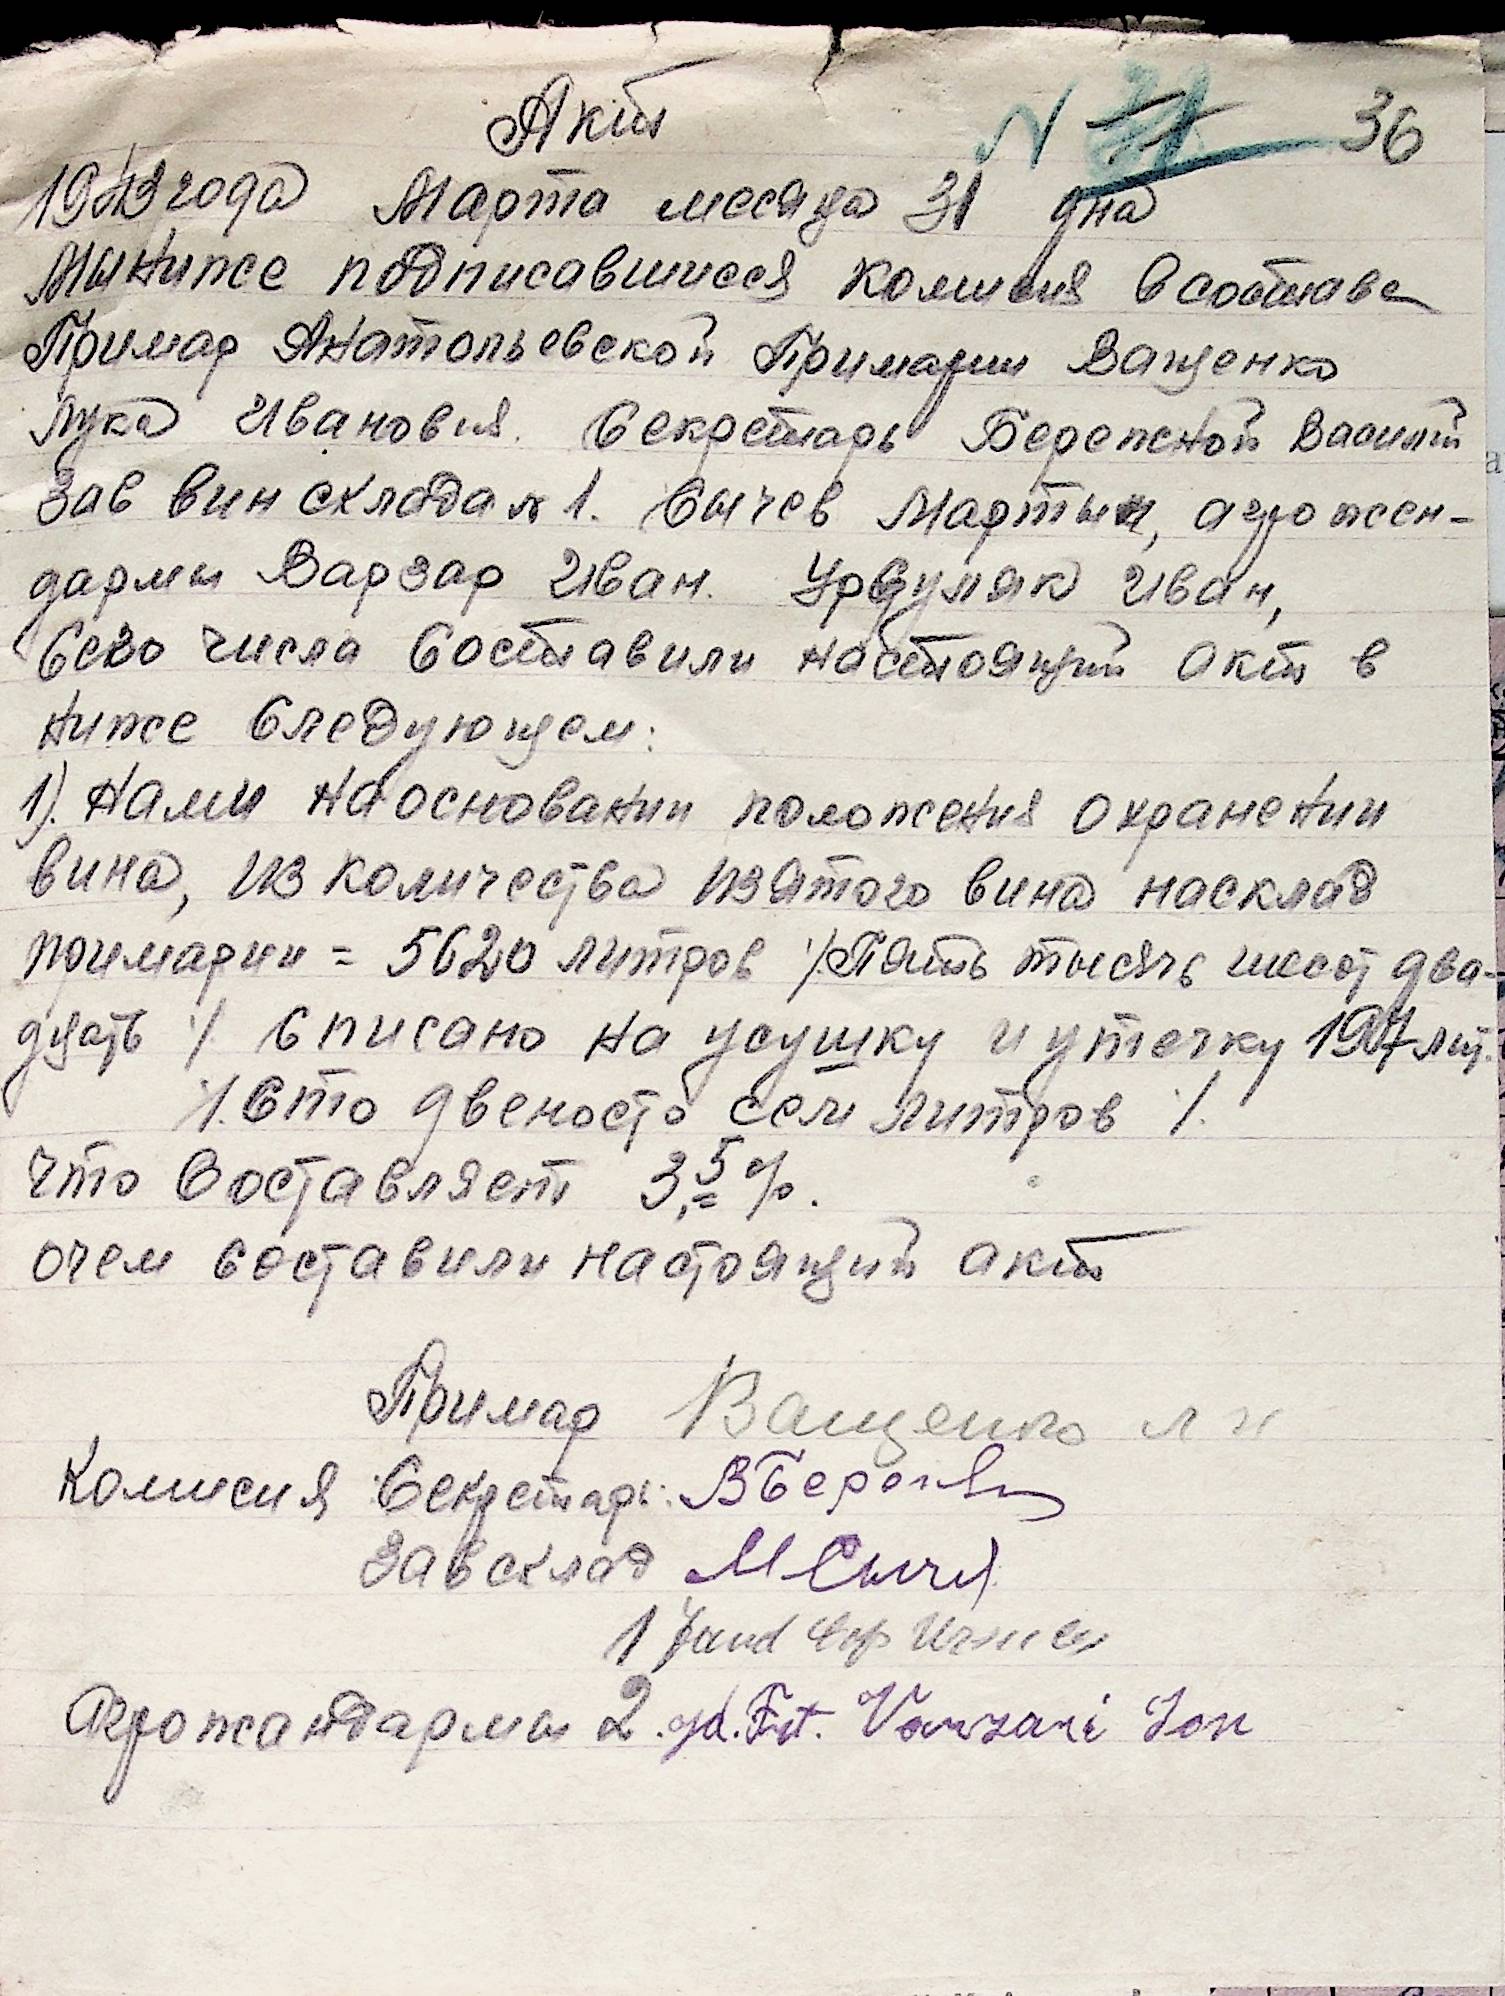 Акт
N 36
1943 года Марта месяца 31 дна
Мы ниже подписавшиеся комисия в составе
Примар Анатольевской Примарии Ващенко
Лука Иванович. Секретарь Бережной Василий
Зав вин склада № 1. Сычев Мартын, агрожен-
дармы Варзар Иван. Урсуляк Иван,
Сего числа Составили настоящий акт в
ниже следующем:
1). Нами на основании положения о хранении
вина, из количества взятого вина на склад
примарии = 5620 литров /. Пять тысяч шесот два-
дцать /. Списано на усушку и утечку 197 лит.
/. Сто двеносто семи литров /.
что составляет 3,5 %.
о чем составили настоящий акт
Примар Ващенко Л И
Комисия Секретарь: В Береж
Зав склад М Сыч
1 Jand
Агрожандармы 2. Varzari Ion